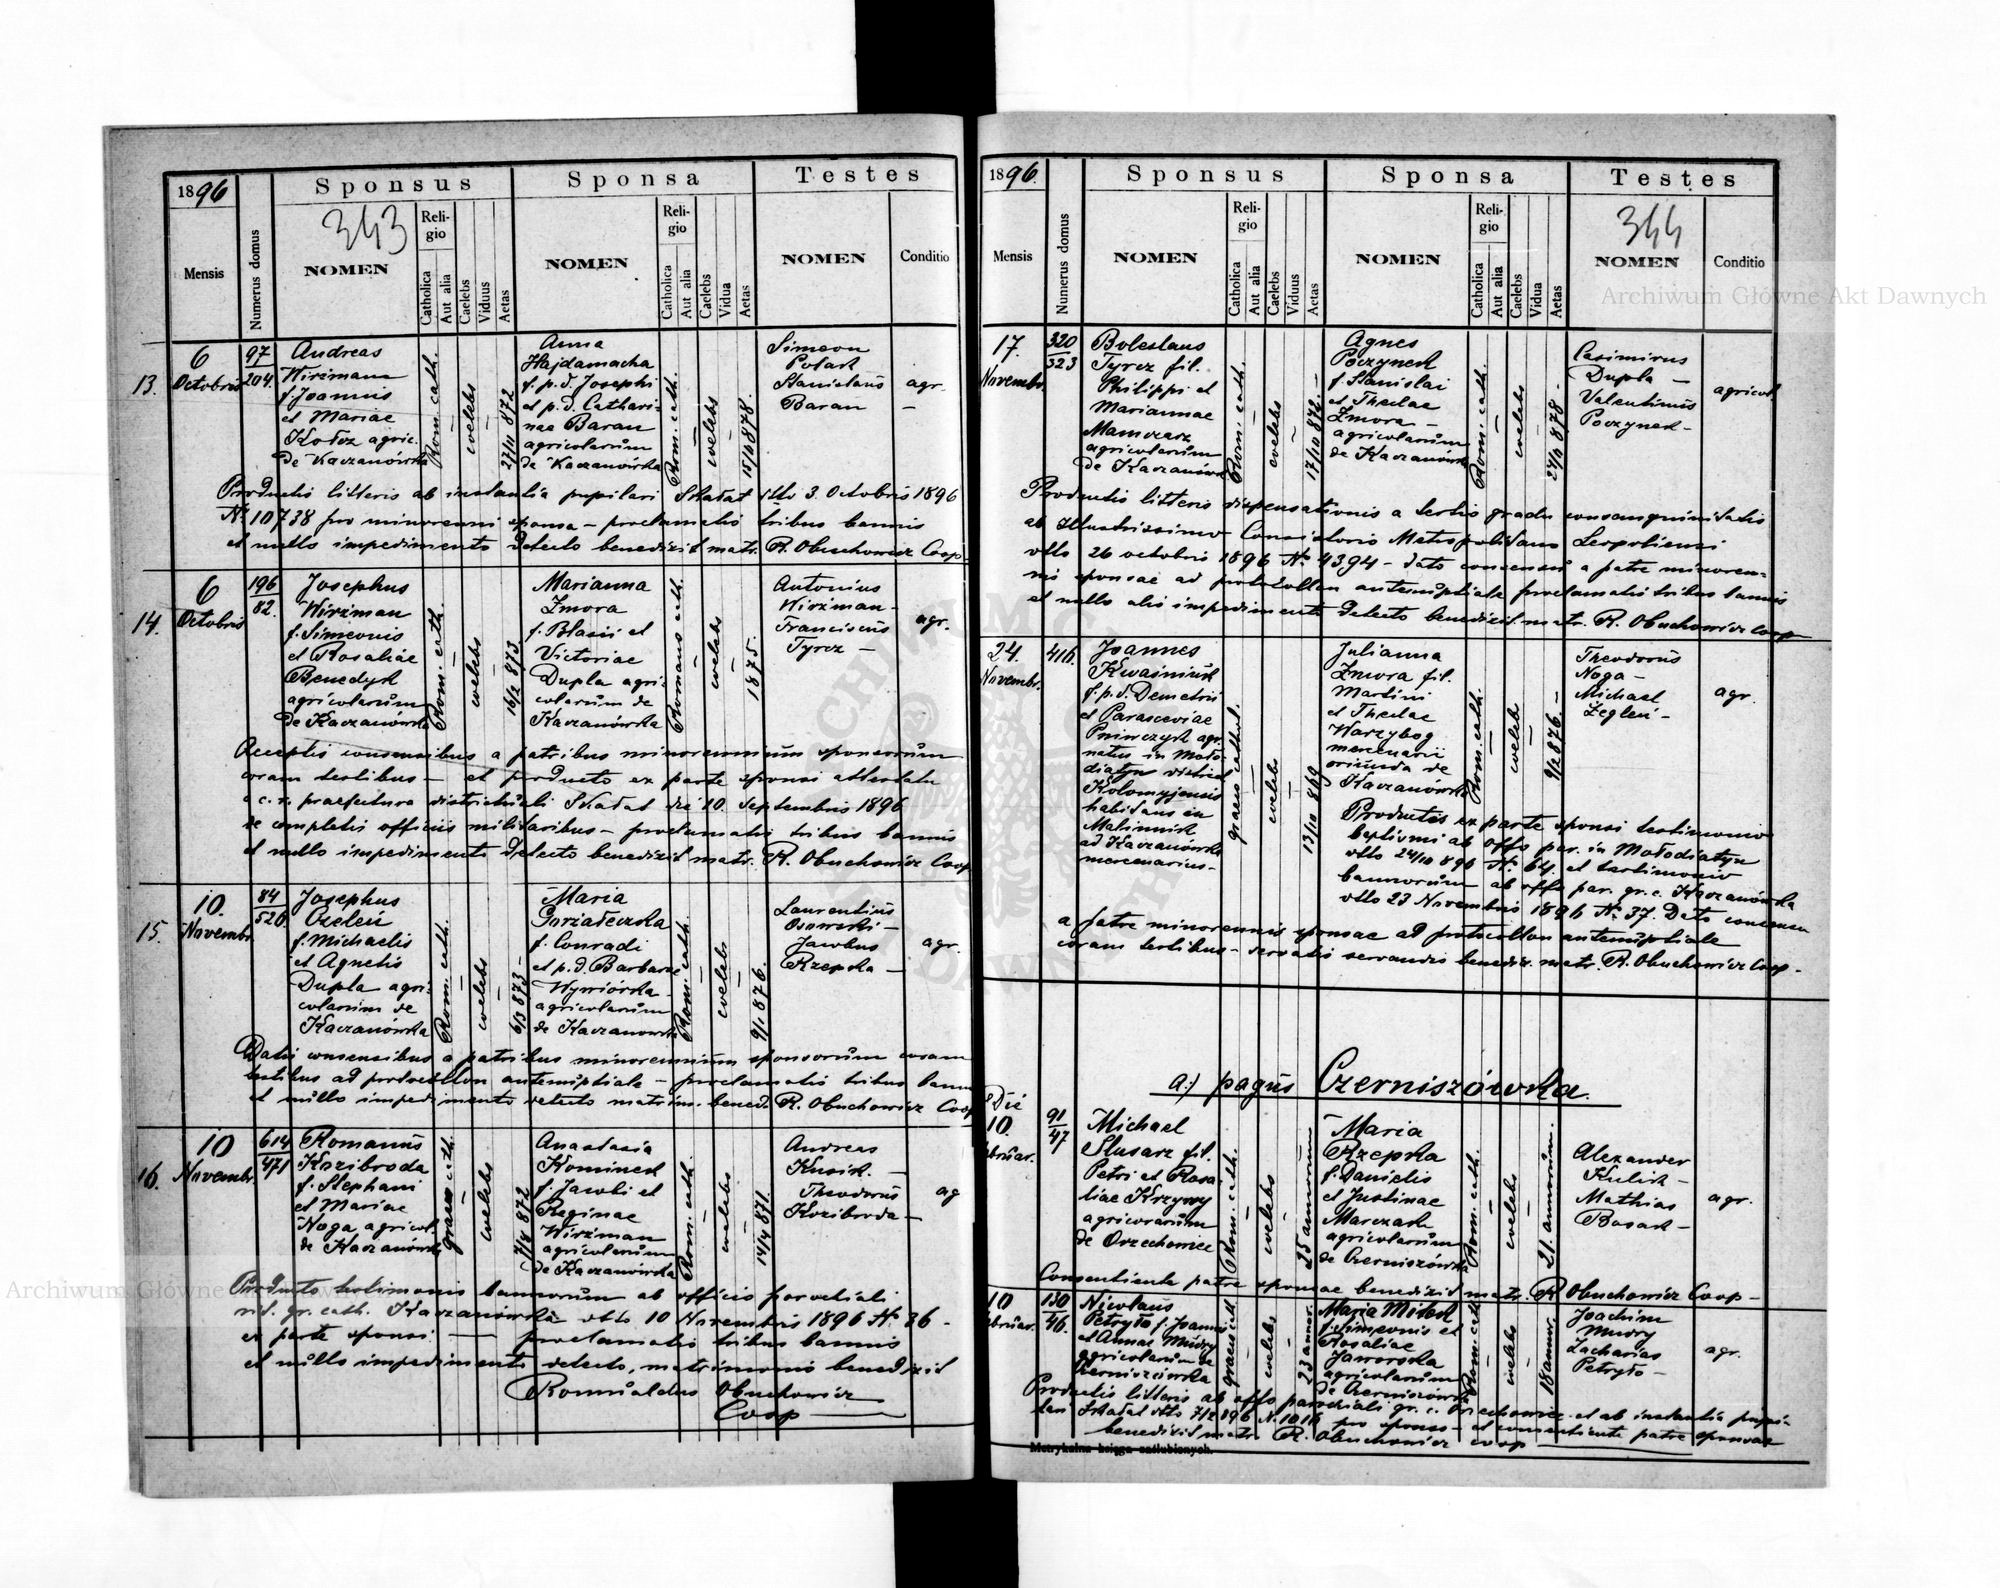 1896
Sponsus
Sponsa
Testes
343
Mensis
Numerus domus
NOMEN
Religio
Catholica
Aut alia
Caelebs
Viduus
Aetas
NOMEN
Religio
Catholica
Aut alia
Caelebs
Vidua
Aetas
NOMEN
Conditio
13.
6
Octobris
97
204.
Andreas
Wirzmann
f. Joannis
et Mariae
Kołcz agric.
de Kaczanówka
Rom. cath.
coelebs
27/11 872
Anna
Hajdamacha
f. p. d. Josephi
et p. d. Cathari-
nae Baran
agricolarum
de Kaczanówka
Rom. cath.
coelebs
15/10 878.
Simeon
Polak
Stanislaus
Baran
agr.
Productis litteris ab instantia pupilari Skałat dtto 3. Octobris 1896
No 10738 pro minorenni sponsa – proclamatis tribus bannis
et nullo impedimento detecto benedixit matr. R. Obuchowicz Coop.
14.
6
Octobris
196
82.
Josephus
Wirzman
f. Simeonis
et Rosaliae
Benedyk
agricolarum
de Kaczanówka
Rom. cath.
coelebs
16/2 873
Marianna
Zmora
f. Blasii et
Victoriae
Dupla agri-
colarum de
Kaczanówka
Romano cath.
coelebs
1875.
Antonius
Wirzman –
Franciscus
Tyrcz –
agr.
Acceptis consensibus a patribus minorennium sponsorum
coram testibus – et producto ex parte sponsi attestatu
a c. r. praefectura districtuali Skałat die 10. Septembris 1896
de completis officiis militaribus – proclamatis tribus bannis
et nullo impedimento detecto benedixit matr. R. Obuchowicz Coop
15.
10.
Novembr.
84
520
Josephus
Czeleń
f. Michaelis
et Agnetis
Dupla agri-
colarum de
Kaczanówka
Rom. cath.
coelebs
6/3 873 –
Maria
f. Conradi
et p. d. Barbarae
Wywiórka
agricolarum
de Kaczanówka
Rom. cath.
coelebs
9/1 876.
Laurentius
Jacobus
Rzepka –
agr.
Datis consensibus a patribus minorennium sponsorum coram
testibus ad protocollon antenuptiale – proclamatis tribus bannis
et nullo impedimento detecto matrim. bened. R. Obuchowicz Coop
16.
10
Novembr.
614
471
Romanus
Kozibroda
f. Stephani
et Mariae
Noga agricol.
de Kaczanówka
graeco cath.
coelebs
7/4 872
Anastasia
Kominek
f. Jacobi et
Reginae
Wirzman
agricolarum
de Kaczanówka
Rom. cath.
coelebs
14/4 871.
Andreas
Kusik –
Theodorus
Kozibroda –
ag
Producto testimonio bannorum ab officio parochiali
rit. gr. cath. Kaczanówka dtto 10 Novembris 1896 No 36 –
ex parte sponsi: – proclamatis tribus bannis
et nullo impedimento detecto, matrimonio benedixit
Romualdus Obuchowicz
Coop
1896.
Sponsus
Sponsa
Testes
344
Mensis
Numerus domus
NOMEN
Religio
Catholica
Aut alia
Caelebs
Viduus
Aetas
NOMEN
Religio
Catholica
Aut alia
Caelebs
Vidua
Aetas
NOMEN
Conditio
17.
Novembr.
320
323
Boleslaus
Tyrcz fil.
Philippi et
Mariannae
Mamczarz
agricolarum
de Kaczanówka
Rom. cath.
coelebs
17/10 872. –
Agnes
Poczynek
f. Stanislai
et Theclae
Zmora –
agricolarum
de Kaczanówka
Rom. cath.
coelebs
Casimirus
Dupla –
Valentinus
Poczynek –
agricol.
Productis litteris dispensationis a tertio gradu consanguinitatis
ab Illustrissimo Consistorio Metropolitano Leopoliensi
dtto 26 octobris 1896 No 4394 – dato consensu a patre minoren-
nis sponsae ad protocollon antenuptiale proclamatis tribus bannis
et nullo alio impedimento detecto benedixit matr. R. Obuchowicz Coop
24.
Novembr.
416.
Joannes
Kwaśniuk
f. p. d. Demetrii
et Parasceviae
Pniwczyk agr.
natus in Moło-
diatyn district.
Kolomyjensis
habitans in
Malinnik
ad Kaczanówka
mercenarius –
graeco cathol.
coelebs
13/10 869
Julianna
Zmora fil.
Martini
et Theclae
Warzybog
mercenarii
oriunda de
Kaczanówka
Rom. cath.
coelebs
9/2 876. –
Theodorus
Noga –
Michael
Żegleń –
agr.
Productis ex parte sponsi testimonio
baptismi ab offo par. in Mołodiatyn
dtto 24/10 896 No 64. et testimonio
bannorum ab offo par. gr. c. Kaczanówka
dtto 23 Novembris 1896 No 37. Dato consensu
a patre minorennis sponsae ad protocollon antenuptiale
coram testibus – servatis servandis benedix. matr. R. Obuchowicz Coop –
a.) pagus Czerniszówka.
Die
10.
bruar.
91
47
Michael
Slusarz fil.
Petri et Rosa-
liae Krzywy
agricolarum
de Orzechowiec
Rom. cath.
coelebs
25 annorum
Maria
Rzepka
f. Danielis
et Justinae
Marczak
agricolarum
de Czerniszówka
Rom. cath.
coelebs
21. annorum.
Alexander
Kulik –
Mathias
Bosak –
agr.
Consentiente patre sponsae benedixit matr. R Obuchowicz Coop –
10
bruar.
130
46.
Nicolaus
Petryło f. Joannis
et Annae Mudry
agricolarum de
Czerniszówka
graeco cath
coelebs
23 annor.
Maria Mitok
f. Simeonis et
Rosaliae
Jaworska
agricolarum
de Czerniszówka
Rom. cath
coelebs
18 annor.
Joachim
Mudry
Zacharias
Petryło –
agr.
Productis litteris ab offo parochiali gr. c. Orzechowiec et ab instantia pupi-
lari Skałat dtto 7/2 896 N. 1016 pro sponso – et consentiente patre sponsae
benedixit matr. R. Obuchowicz Coop
Metrykalna księga zaślubionych.
Archiwum Główne Akt Dawnych
Archiwum Główne Akt Dawnych